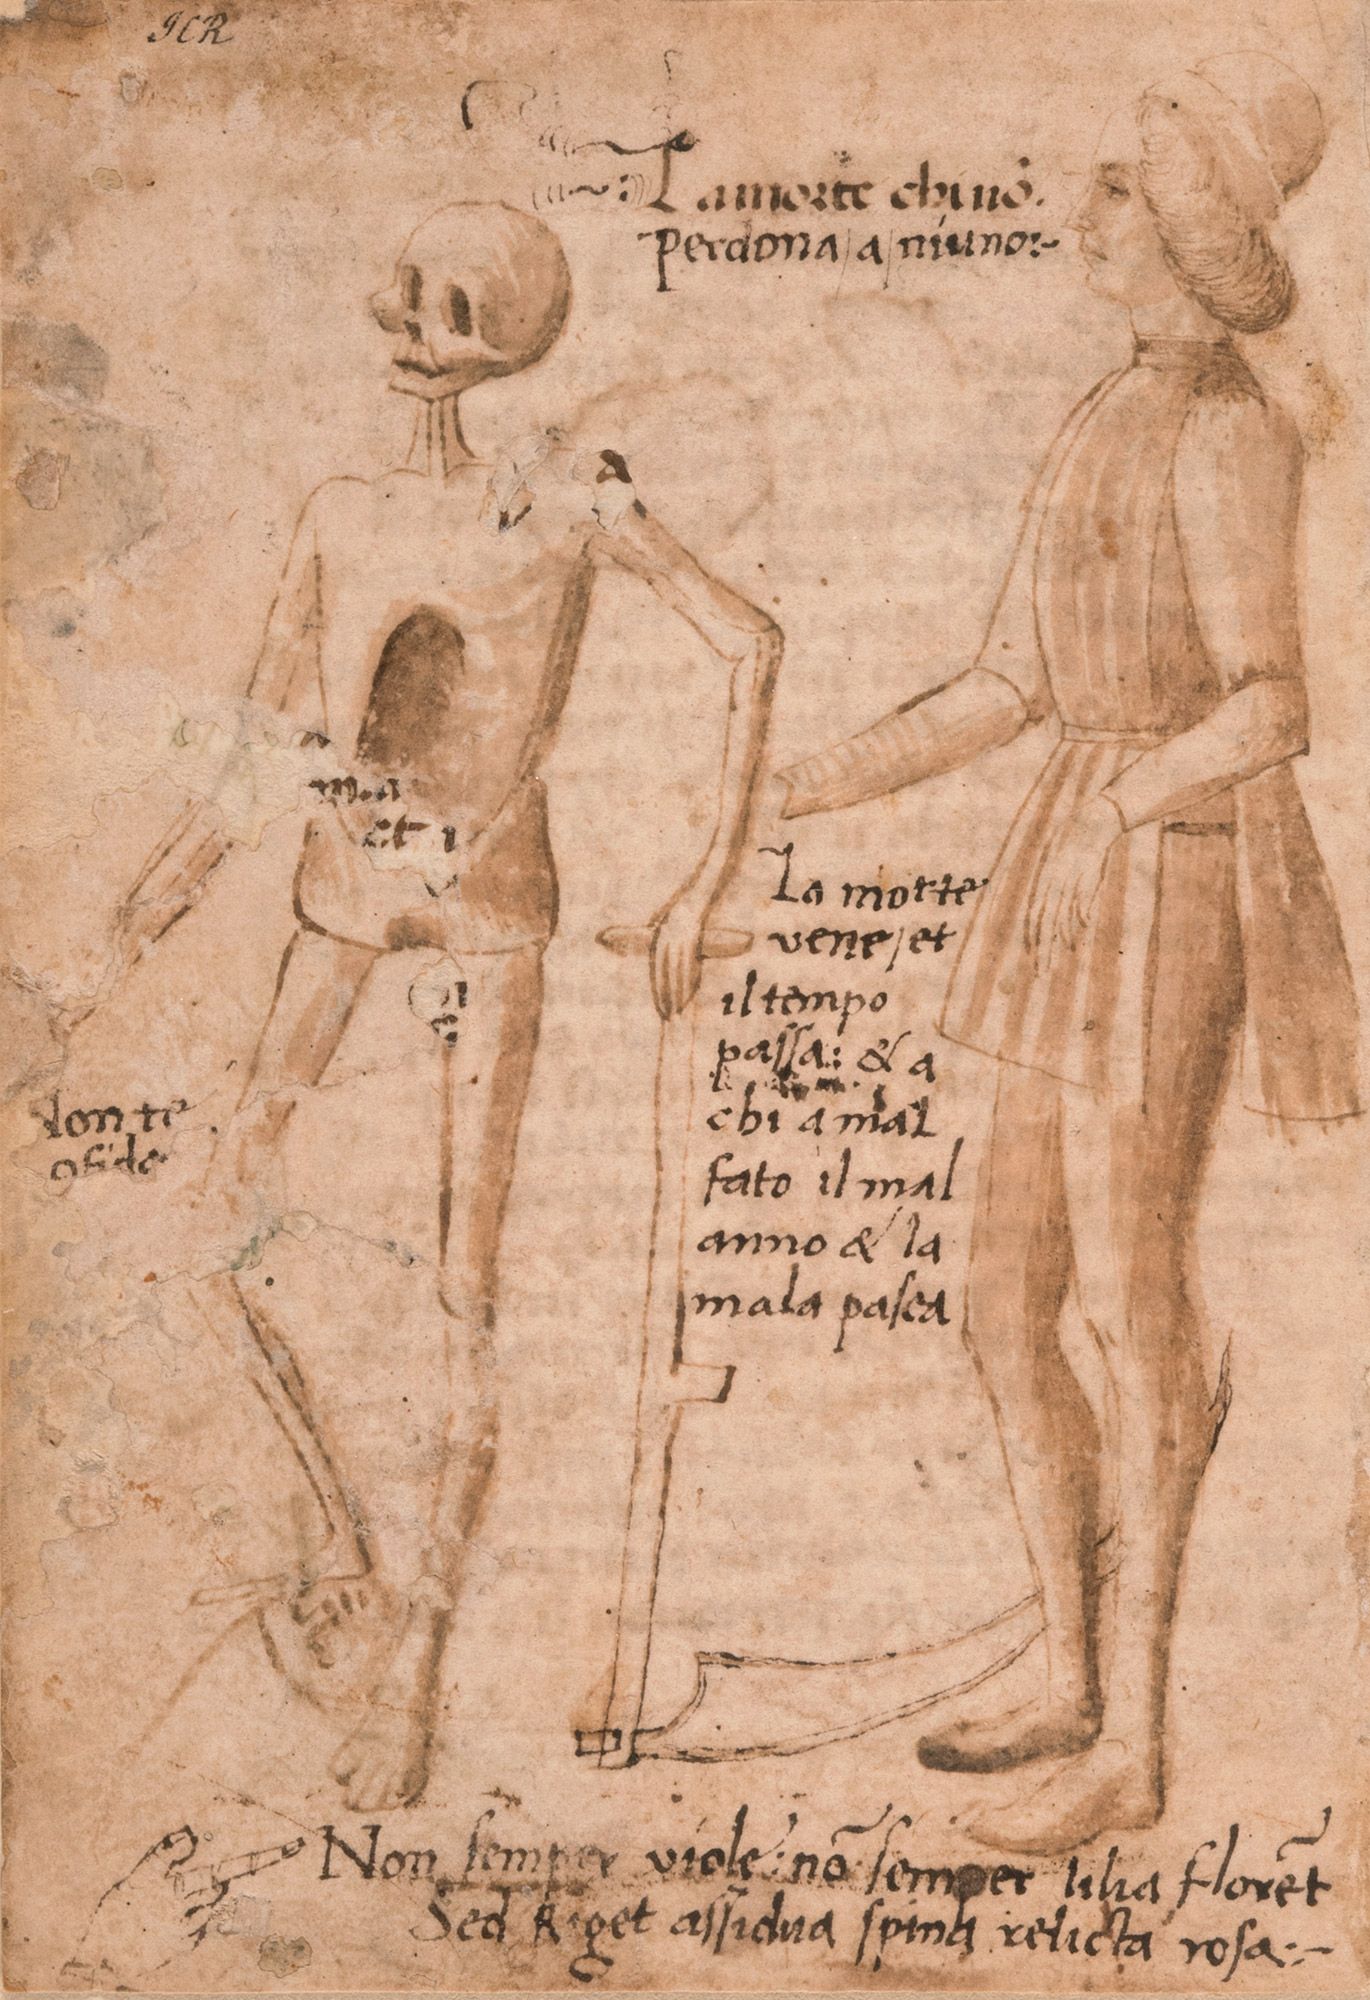 JCR
La morte chi nō.
perdona / a / niuno:~
a
m.a
et i
La morte
vene / et
il tempo
passa: & a
chi a mal
fato il mal
anno & la
mala pasca
Non te
Non semper viole: nō semper lilia florēt
Sed Riget assidua spina relicta rosa:~